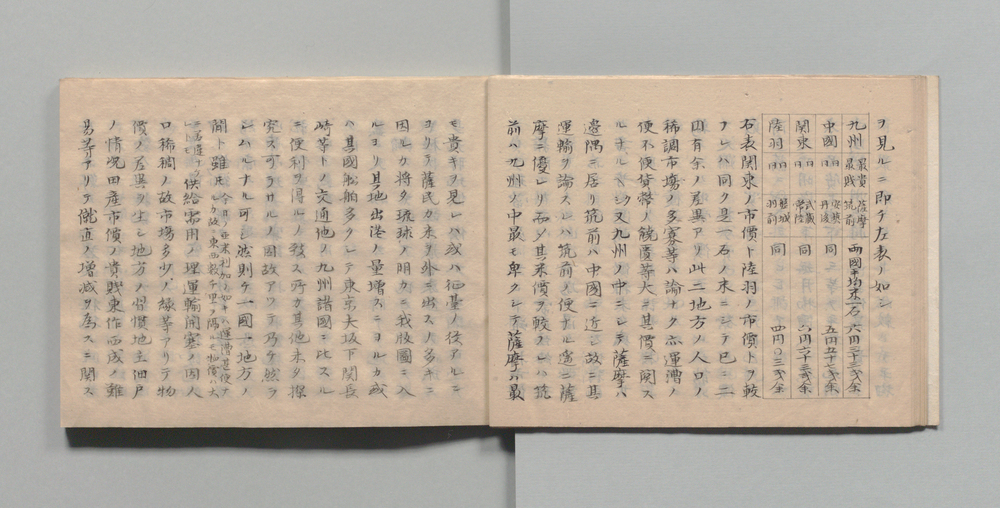 ヲ見ルニ即チ左表ノ如シ
九州 最貴 薩摩 最賎 筑前 両國平均米一石 六円三十三戋余
中國 同 安藝 同 丹後 同 五円五十七戋余
関東 同 武蔵 同 常陸 同 六円六十三戋余
陸羽 同 磐城 同 羽前 同 四円〇三戋余
右表関東ノ市價ト陸羽ノ市價トヲ較
ナレハ同ク是一石ノ米ニシテ已ニ二
円有余ノ差異アリ此二地方ノ人口ノ
稀調市場ノ多寡等ハ論ナク亦運漕ノ
便不便貨幣ノ饒匱等大ニ其價ニ関ス
ルナルヘシ又九州ノ中ニシテ薩摩ハ
邊隅ニ居リ筑前ハ中國ニ近シ故ニ其
運輸ヲ論スレハ筑前ノ便ナル遙ニ薩
摩ニ優レリ而〆其米價ヲ較フレハ筑
前ハ九州ノ中最モ卑クシテ薩摩ハ最
モ貴キヲ見レハ或ハ征臺ノ役アルニ
ヨリテ薩民カ米ヲ外ニ出スノ多キニ
因ルカ将タ琉球ノ明カニ我版圖ニ入
ルヨリ其地出港ノ量増スニヨルカ或
ハ其國船舶多クシテ東京大坂下関長
崎等トノ交通他ノ九州諸國ニ比スル
ニ便利ヲ得ルノ致ス所カ其他未タ探
究ス可ラサルノ固故アリテ乃チ然ラ
シムルナル可シ然則チ一國一地方ノ
間ト雖モ今日亜米利加ノ如キハ運漕甚便ナルカ故ニ東西数千里ヲ隔ルモ物價ハ大ニ差違ナシト云 供給需用ノ理運輸開塞ノ因人
口稀稠ノ故市場多少ノ縁等アリテ物
價ノ差異ヲ生シ地方ノ習慣地主細戸
ノ情況田産市價ノ貴賎東作西成ノ難
易等アリテ僦直ノ増減ヲ為スニ関ス